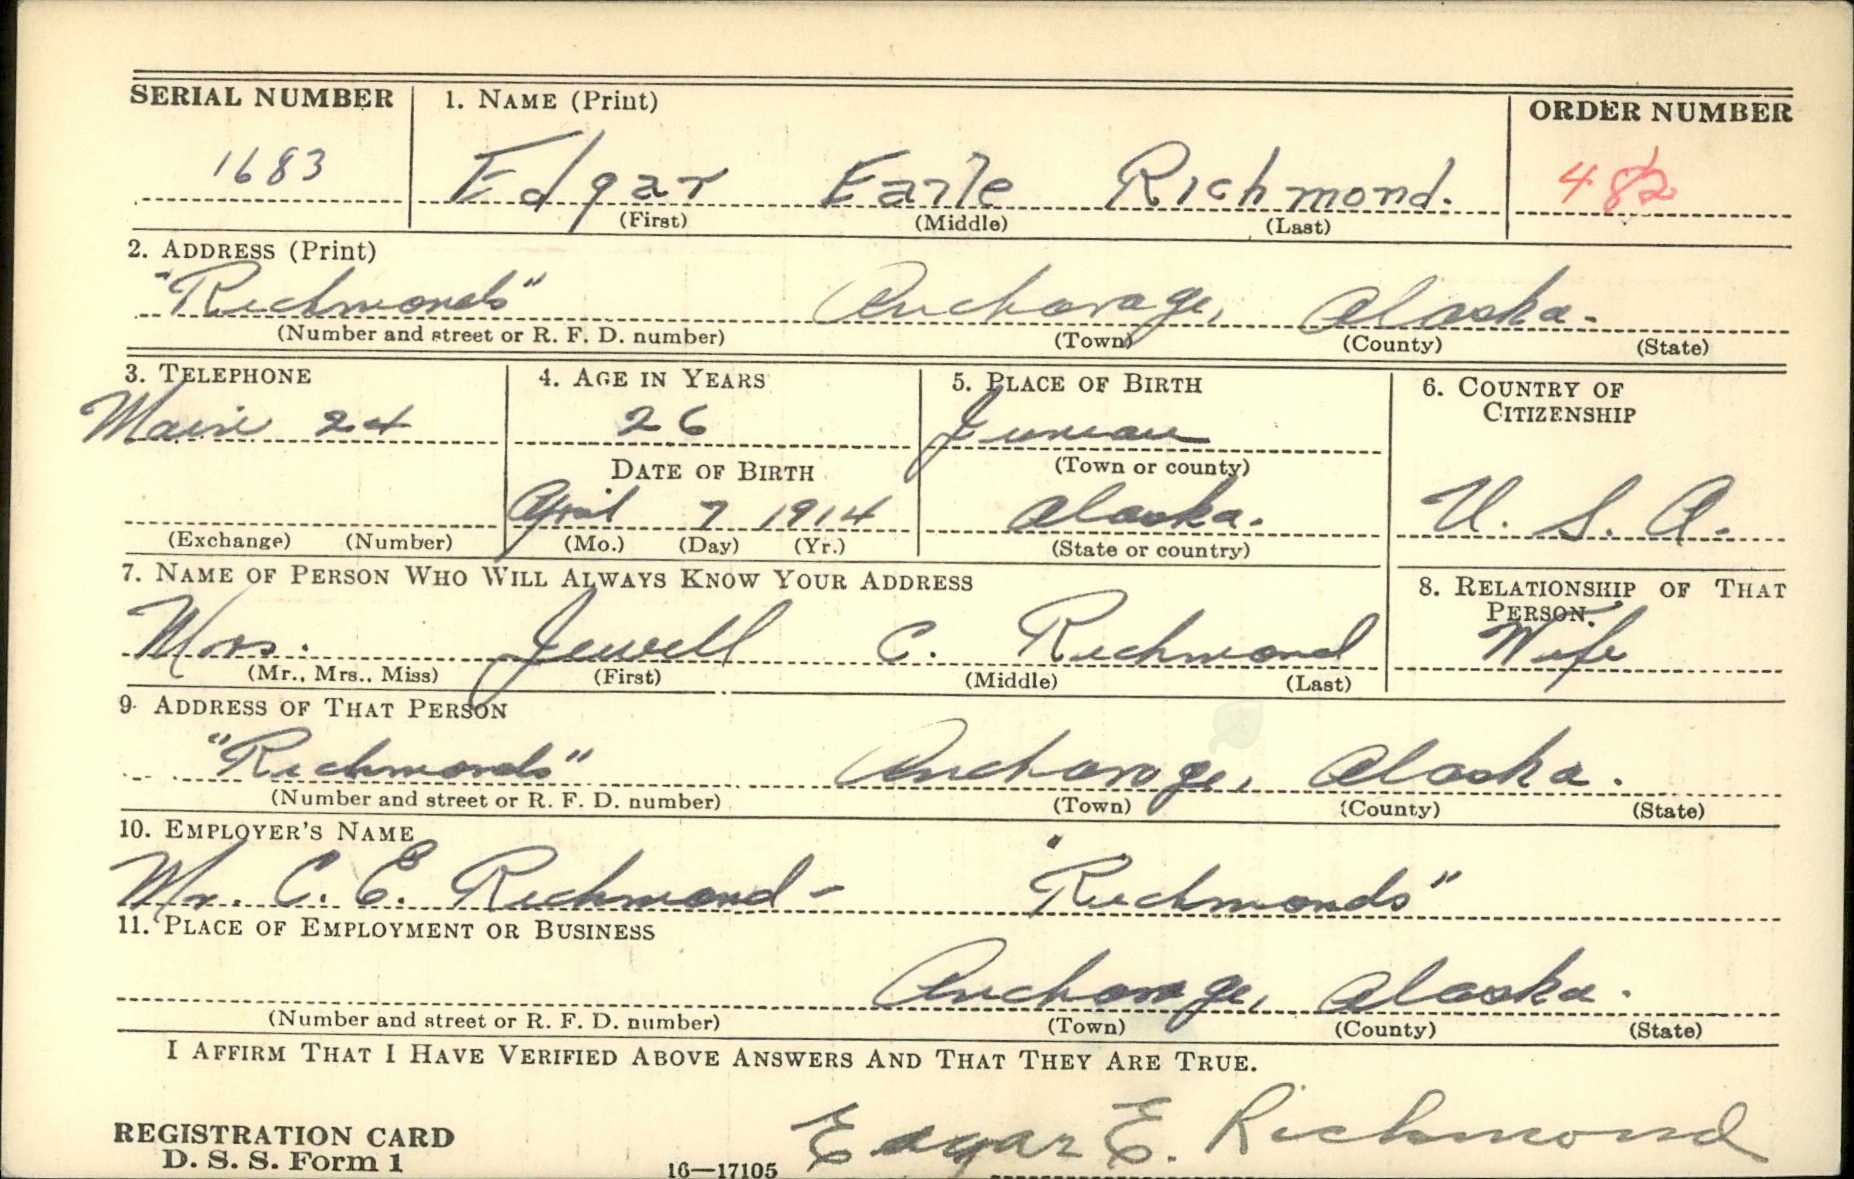 SERIAL NUMBER 1. NAME (Print) ORDER NUMBER
1683 Edgar Earle Richmond. 482
(First) (Middle) (Last)
2. ADDRESS (Print)
"Richmonds" Anchorage, Alaska.
(Number and street or R. F. D. number) (Town) (County) (State)
3. TELEPHONE 4. AGE IN YEARS 5. PLACE OF BIRTH 6. COUNTRY OF CITIZENSHIP
Main 24 26 Juneau
DATE OF BIRTH (Town or county)
April 7 1914 Alaska. U. S. A.
(Exchange) (Number) (Mo.) (Day) (Yr.) (State or country)
7. NAME OF PERSON WHO WILL ALWAYS KNOW YOUR ADDRESS 8. RELATIONSHIP OF THAT PERSON.
Mrs. Jewell C. Richmond Wife
(Mr., Mrs., Miss) (First) (Middle) (Last)
9. ADDRESS OF THAT PERSON
"Richmonds" Anchorage, Alaska.
(Number and street or R. F. D. number) (Town) (County) (State)
10. EMPLOYER'S NAME
Mr. C. E. Richmond - "Richmonds"
11. PLACE OF EMPLOYMENT OR BUSINESS
Anchorage, Alaska.
(Number and street or R. F. D. number) (Town) (County) (State)
I AFFIRM THAT I HAVE VERIFIED ABOVE ANSWERS AND THAT THEY ARE TRUE.
REGISTRATION CARD
D. S. S. Form 1 16—17105 Edgar E. Richmond